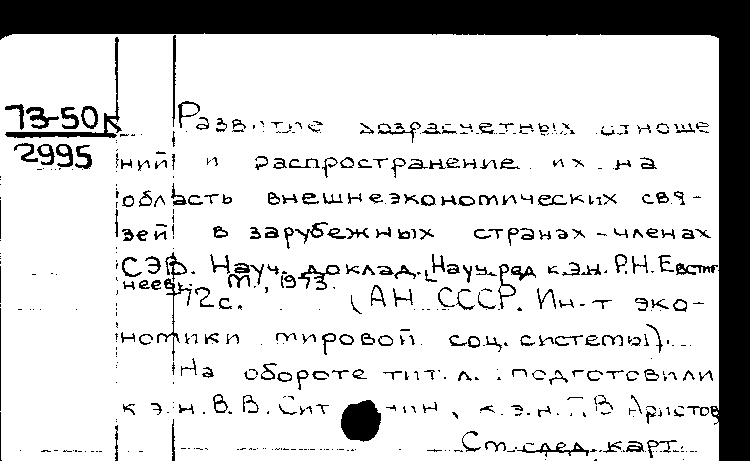 73-50к
2995
Развитие хозрасчетных отноше
ний и распространение их на
область внешнеэкономических свя-
зей в зарубежных странах-членах
СЭВ. Науч. доклад. [Науч. ред к.э.н. Р.Н. Евстиг
неев]. М., 1973.
72с. (АН СССР. Ин-т эко-
номики мировой соц. системы).
На обороте тит. л.: подготовили
к.э.н. В.В. к.э.н. Г.В Аристов
См. след. карт.